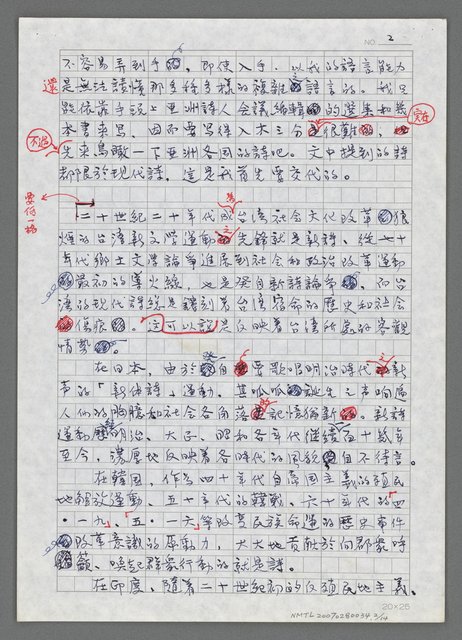 NO. 2
不容易弄到手，即使入手，以我的語言能力
還是無法讀懂那多種多樣的複雜語言的。我只
能依靠手頭上亞洲詩人會議編輯的選集和幾
本書來寫，因而要寫得入木三分實在很難，
不過先來鳥瞰一下亞洲各国的詩吧。文中提到的詩
都限於現代詩，這是我首先要交代的。
要低一格
二十世紀二十年代台湾社会文化改革狼
煙的台湾新文學運動之先鋒就是新詩。從七十
年代鄉土文學論爭進展到社会和政治改革運動
最初的導火線，也是發自新詩論爭，而台
湾的現代詩総是鐫刻着台湾宿命的歷史和社会
傷痕。這可以說是反映着台湾所處的客觀
情勢。
在日本，由於自要歌唱明治時代之新
節的「新体詩」運動，其呱呱誕生之声响
人們的胸臆和社会各角落記憶猶新。新詩
運動明治、大正、昭和各年代継續至十幾年
至今，濃厚地反映着各時代的風貌自不待言。
在韓国，作為四十年代自帝国主義的殖民
地解放運動、五十年代的韓戰、六十年代的「四
・一九」、「五・一六」等改変民族命運的歷史事件
改革意識的原動力，大大地貢献於向群衆呼
籲、喚起群衆行動的就是詩。
在印度，隨着二十世紀初的反殖民地主義、
20×25
NMTL20070280034 2/14